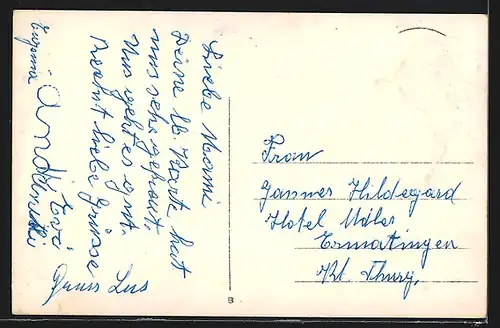 Liebe Mami
Deine lb. Karte hat
uns sehr gefreut.
Uns geht es gut.
Recht liebe Grüsse
Evi
Eugenia
Gruss Lus
Frau
Jannes Hildegard
Hotel Adler
Ermatingen
Kt Thurg.
B